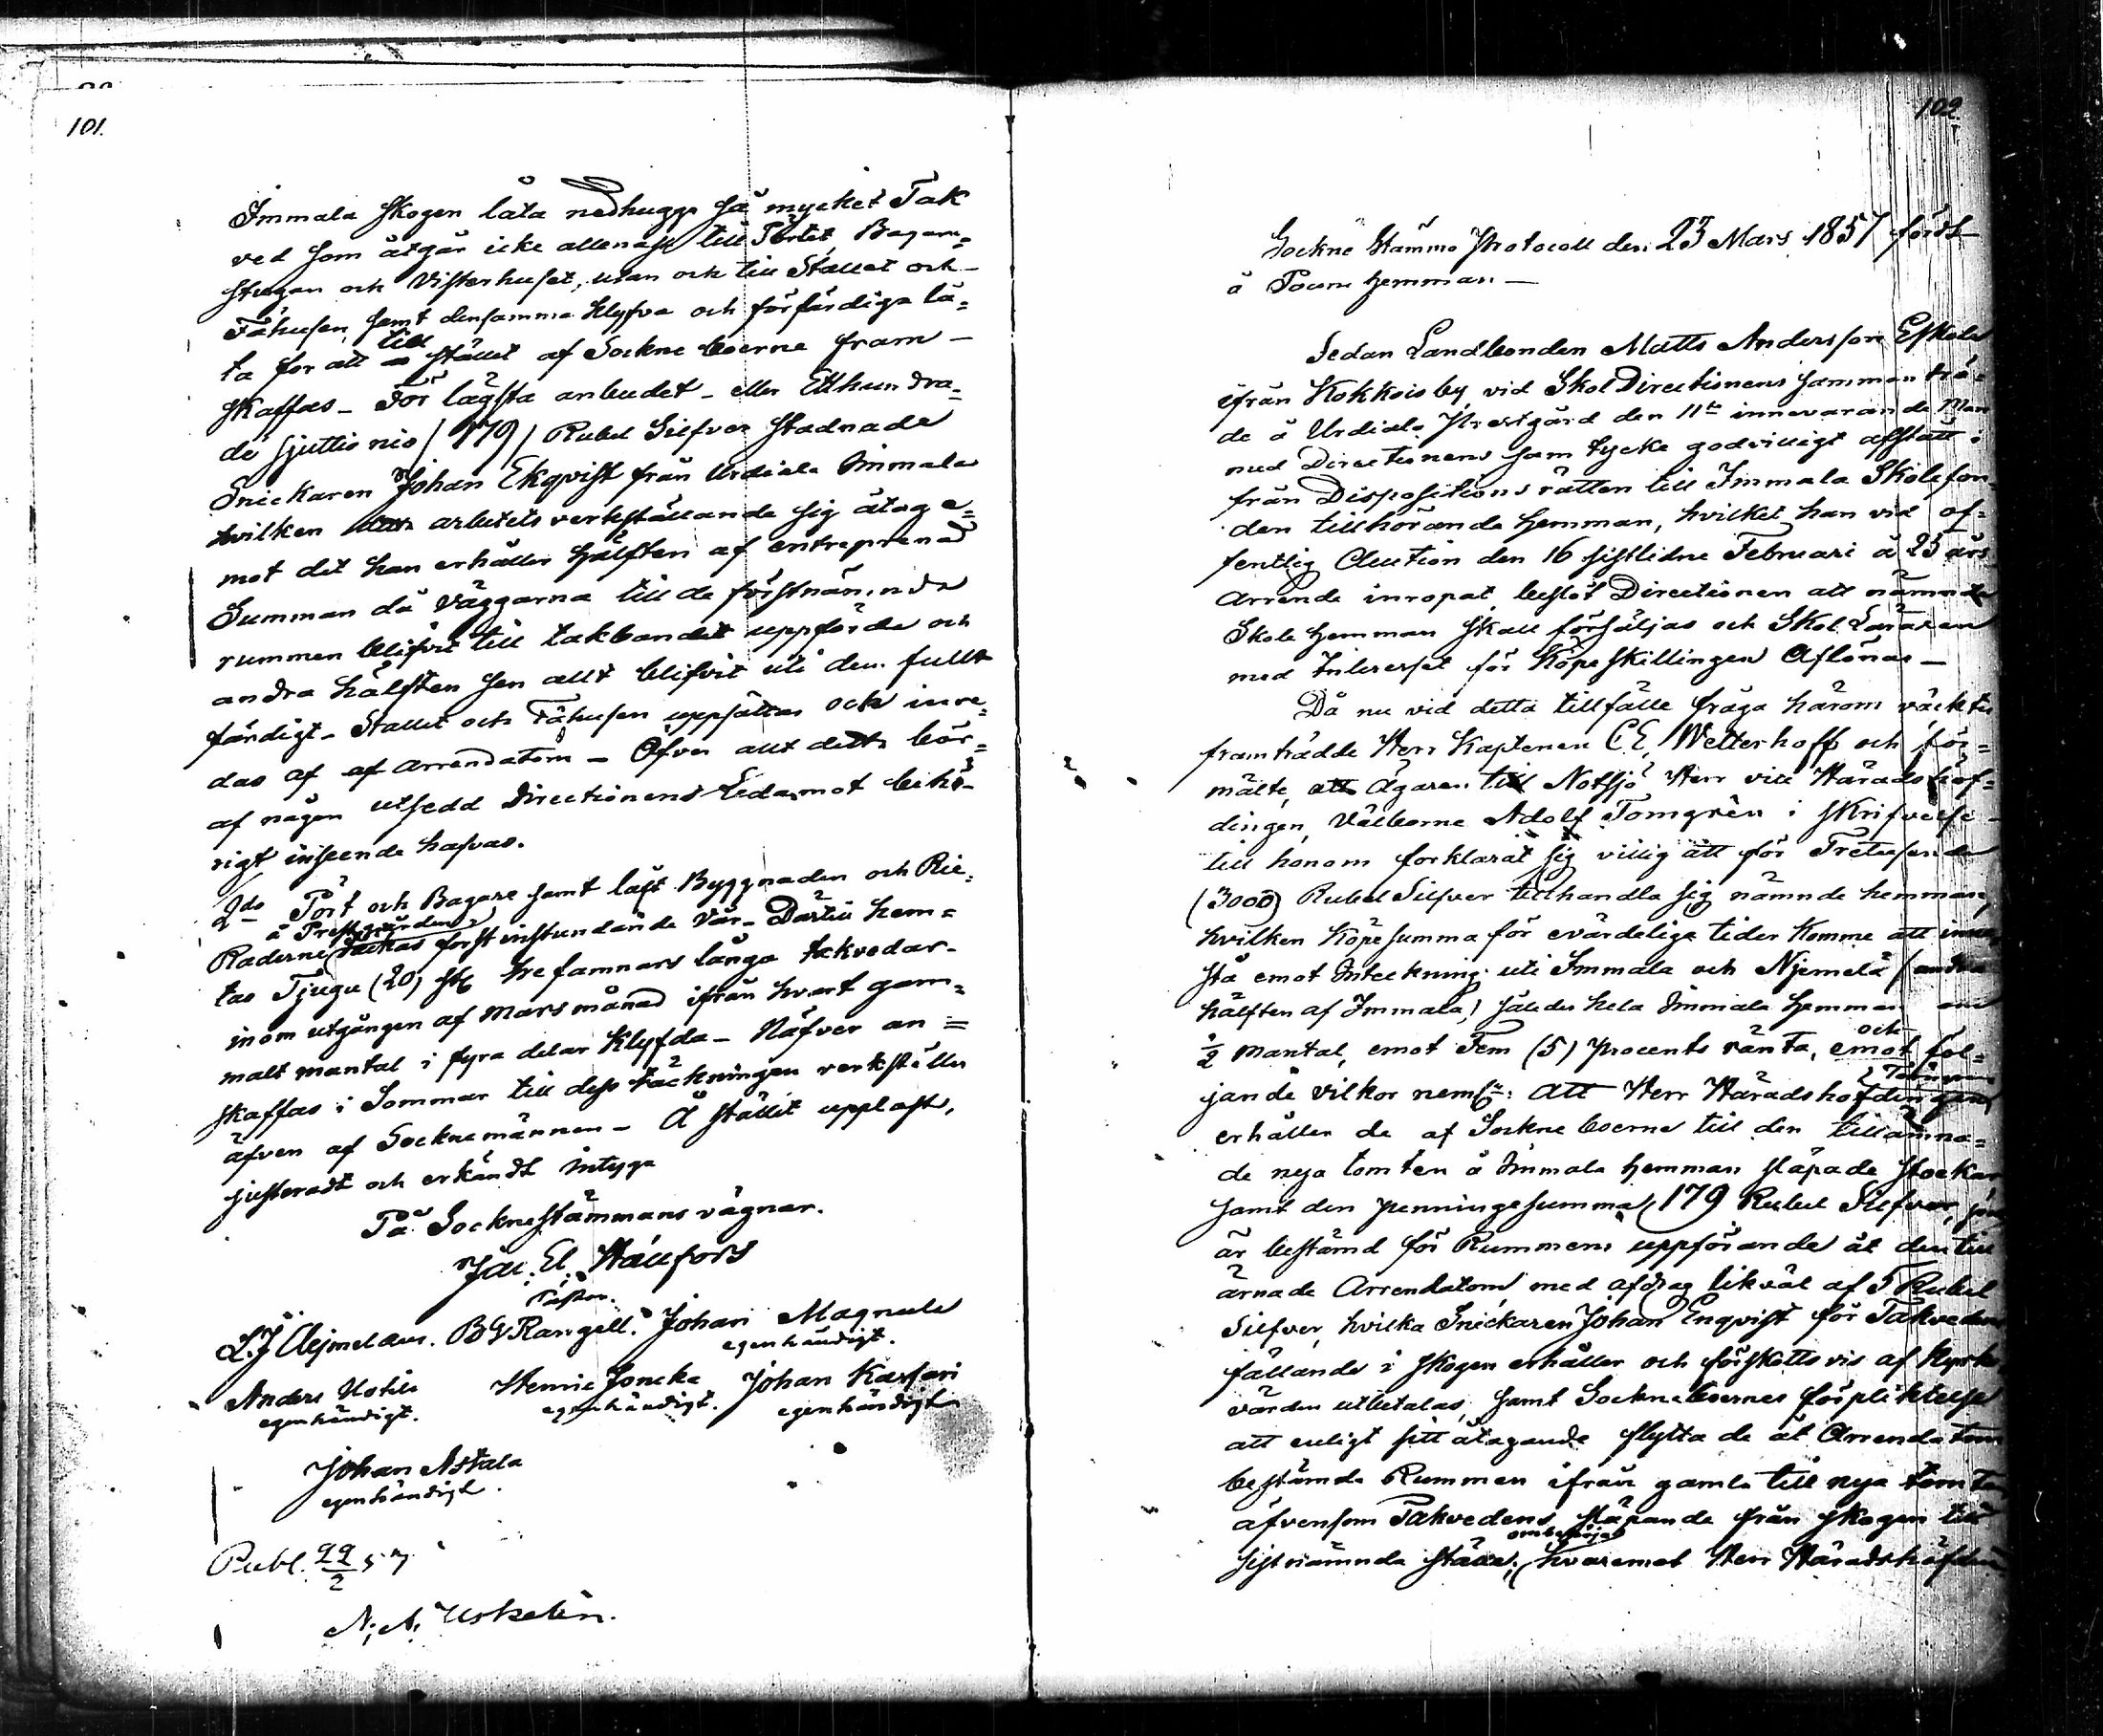 101.
Immala skogen låta nedhugga så mycket Tak
ved som åtgår icke allenast till Pörtet, Bagare=
stugan och Visterhuset, utan och till Stallet och
Fähusen, samt densamma klyfva och förfärdiga lå=
ta för att till stället af Sockne boerne fram-
skaffas - För lägsta anbudet - eller Etthundra=
de sjuttionio (179) Rubel Silfver stadnade
Snickaren Johan Ekqvist från Urdiala Immala
hvilken arbetets verkställande sig åtoge=
mot det han erhåller hälften af entreprenad
Summan då Väggarna till de förstnämnda
rummen blifvit till takbandet uppförde och
andra hälften sen allt blifvit uti den fullt
färdigt - Stallet och Fähusen uppsättas och inre=
das af af arrendatorn - Öfver allt detta bör=
af någon utsedd Directionens Ledamot behö-
rigt inseende hafvas.
2do Pört och Bagare samt loft Byggnaden och Rie=
å Prestgården
Raderne täckas först instundande Vår - Därtill hem=
tas Tjugu (20) st trefamnars långa takvedar-
inom utgången af Mars månad ifrån hvart gam=
malt mantal i fyra delar klyfda - Näfver an=
skaffas i Sommar till dess täckningen verkställes
äfven af Socknemännen - Å stället uppläst,
justeradt och erkändt intyga
På Socknestämmans vägnar.
Jac. El. Hällfors
Pastor.
L. J. Aejmelæus. B G Rangell. Johan Magnula
egenhändigt.
Anders Uotila Henric Joncka Johan Kassari
egenhändigt. egenhändigt. egenhändigt
Johan Astala
egenhändigt.
Publ. 22/2 57
N. A. Uskelin.
102.
Sockne Stämmo Protocoll den 23 Mars 1857 fördt
å Pocum hemman -
Sedan Landbonden Matts Andersson Eskola
ifrån Kokkois by, vid Skol Directionens samman trä=
de å Urdiala Prestgård den 11te innevarande Mars
med Directionens sam tycke godvilligt afstått i
från Dispositions rätten till Immala Skolefon
den tillhörande hemman, hvilket han vid of=
fentlig Auction den 16 sistlidne Februari å 25 års
Arrende inropat, beslöt Directionen att nämnde
Skole hemman skall försäljas och Skol Läraren
med Interesset för Köpeskillingen Aflönas -
Då nu vid detta tillfälle fråga härom väcktes
framträdde Herr Kaptenen C E, Wetterhoff och för=
mälte, att Ägaren till Notsjö Herr vice Häradshöf=
dingen, Välborne Adolf Törngrén i skrifvelse
till honom förklarat sig villig att för Tretusende
(3000) Rubel Silfver tillhandla sig nämnde hemman,
hvilken Köpesumma för evärdeliga tider komme att inne
stå emot Inteckning uti Immala och Njemelä (andra
hälften af Immala) således hela Immala Hemman om
1/2 Mantal, emot Fem (5) procents ränta, och emot föl=
jande vilkor neml: att Herr Häradshöfdingen
erhåller de af Sockne boerne till den tillämna=
de nya tomten å Immala Hemman släpade stockar
samt den penningesumma, 179 Rubel Silfver, som
är bestämd för Rummens uppförande åt den till
ärnade Arrendatorn med afdrag likväl af 5 Rubel
Silfver, hvilka Snickaren Johan Enqvist för Takvedens
fällande i skogen erhåller och förskotts vis af Kyrko
värden utbetalas, samt Sockneboernes förpliktelse
att enligt sitt åtagande flytta de åt Arrendatorn
bestämde Rummen ifrån gamla till nya tomten
äfvensom Takvedens släpande från skogen till
ombesörjes
sistnämnda ställe; hvaremot Herr Häradshöfdin